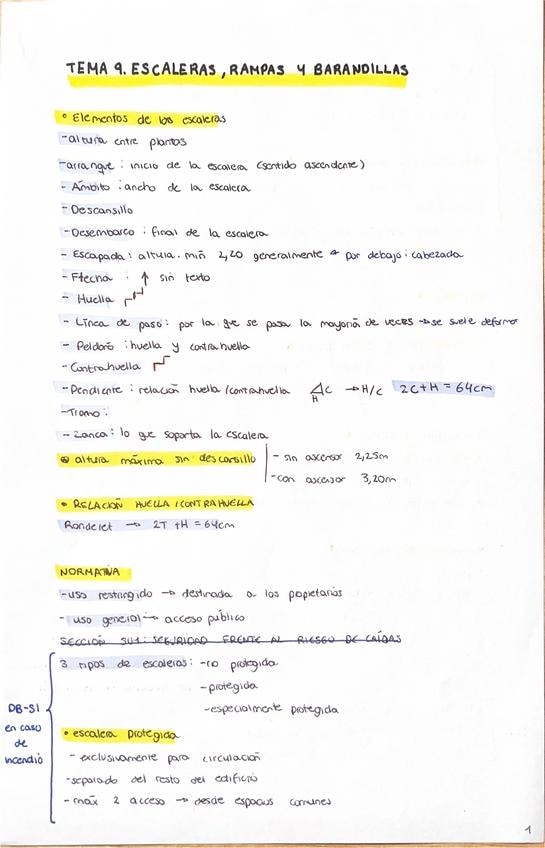 TEMA 9. ESCALERAS, RAMPAS Y BARANDILLAS
• Elementos de las escaleras
- altura entre plantas
- arranque : inicio de la escalera (sentido ascendente)
- Ámbito : ancho de la escalera
- Descansillo
- Desembarco : final de la escalera
- Escapada : altura. min 2,20 generalmente → por debajo : cabezada
- Flecha : ↑ sin texto
- Huella
- Línea de paso : por la que se pasa la mayoría de veces → se suele deformar
- Peldaño : huella y contrahuella
- Contrahuella
- Pendiente : relación huella/contrahuella C H → H/C 2C+H = 64cm
- Tramo :
- Zanca : lo que soporta la escalera
• altura máxima sin descansillo - sin ascensor 2,25m
- con ascensor 3,20m
• RELACIÓN HUELLA / CONTRAHUELLA
Rondelet → 2T + H = 64cm
NORMATIVA
- uso restringido → destinada a los propietarios
- uso general → acceso público
SECCIÓN SU1: SEGURIDAD FRENTE AL RIESGO DE CAÍDAS
3 tipos de escaleras : - no protegida
- protegida
- especialmente protegida
DB-SI
en caso
de
incendio
• escalera protegida
- exclusivamente para circulación
- separado del resto del edificio
- máx 2 acceso → desde espacios comunes
1